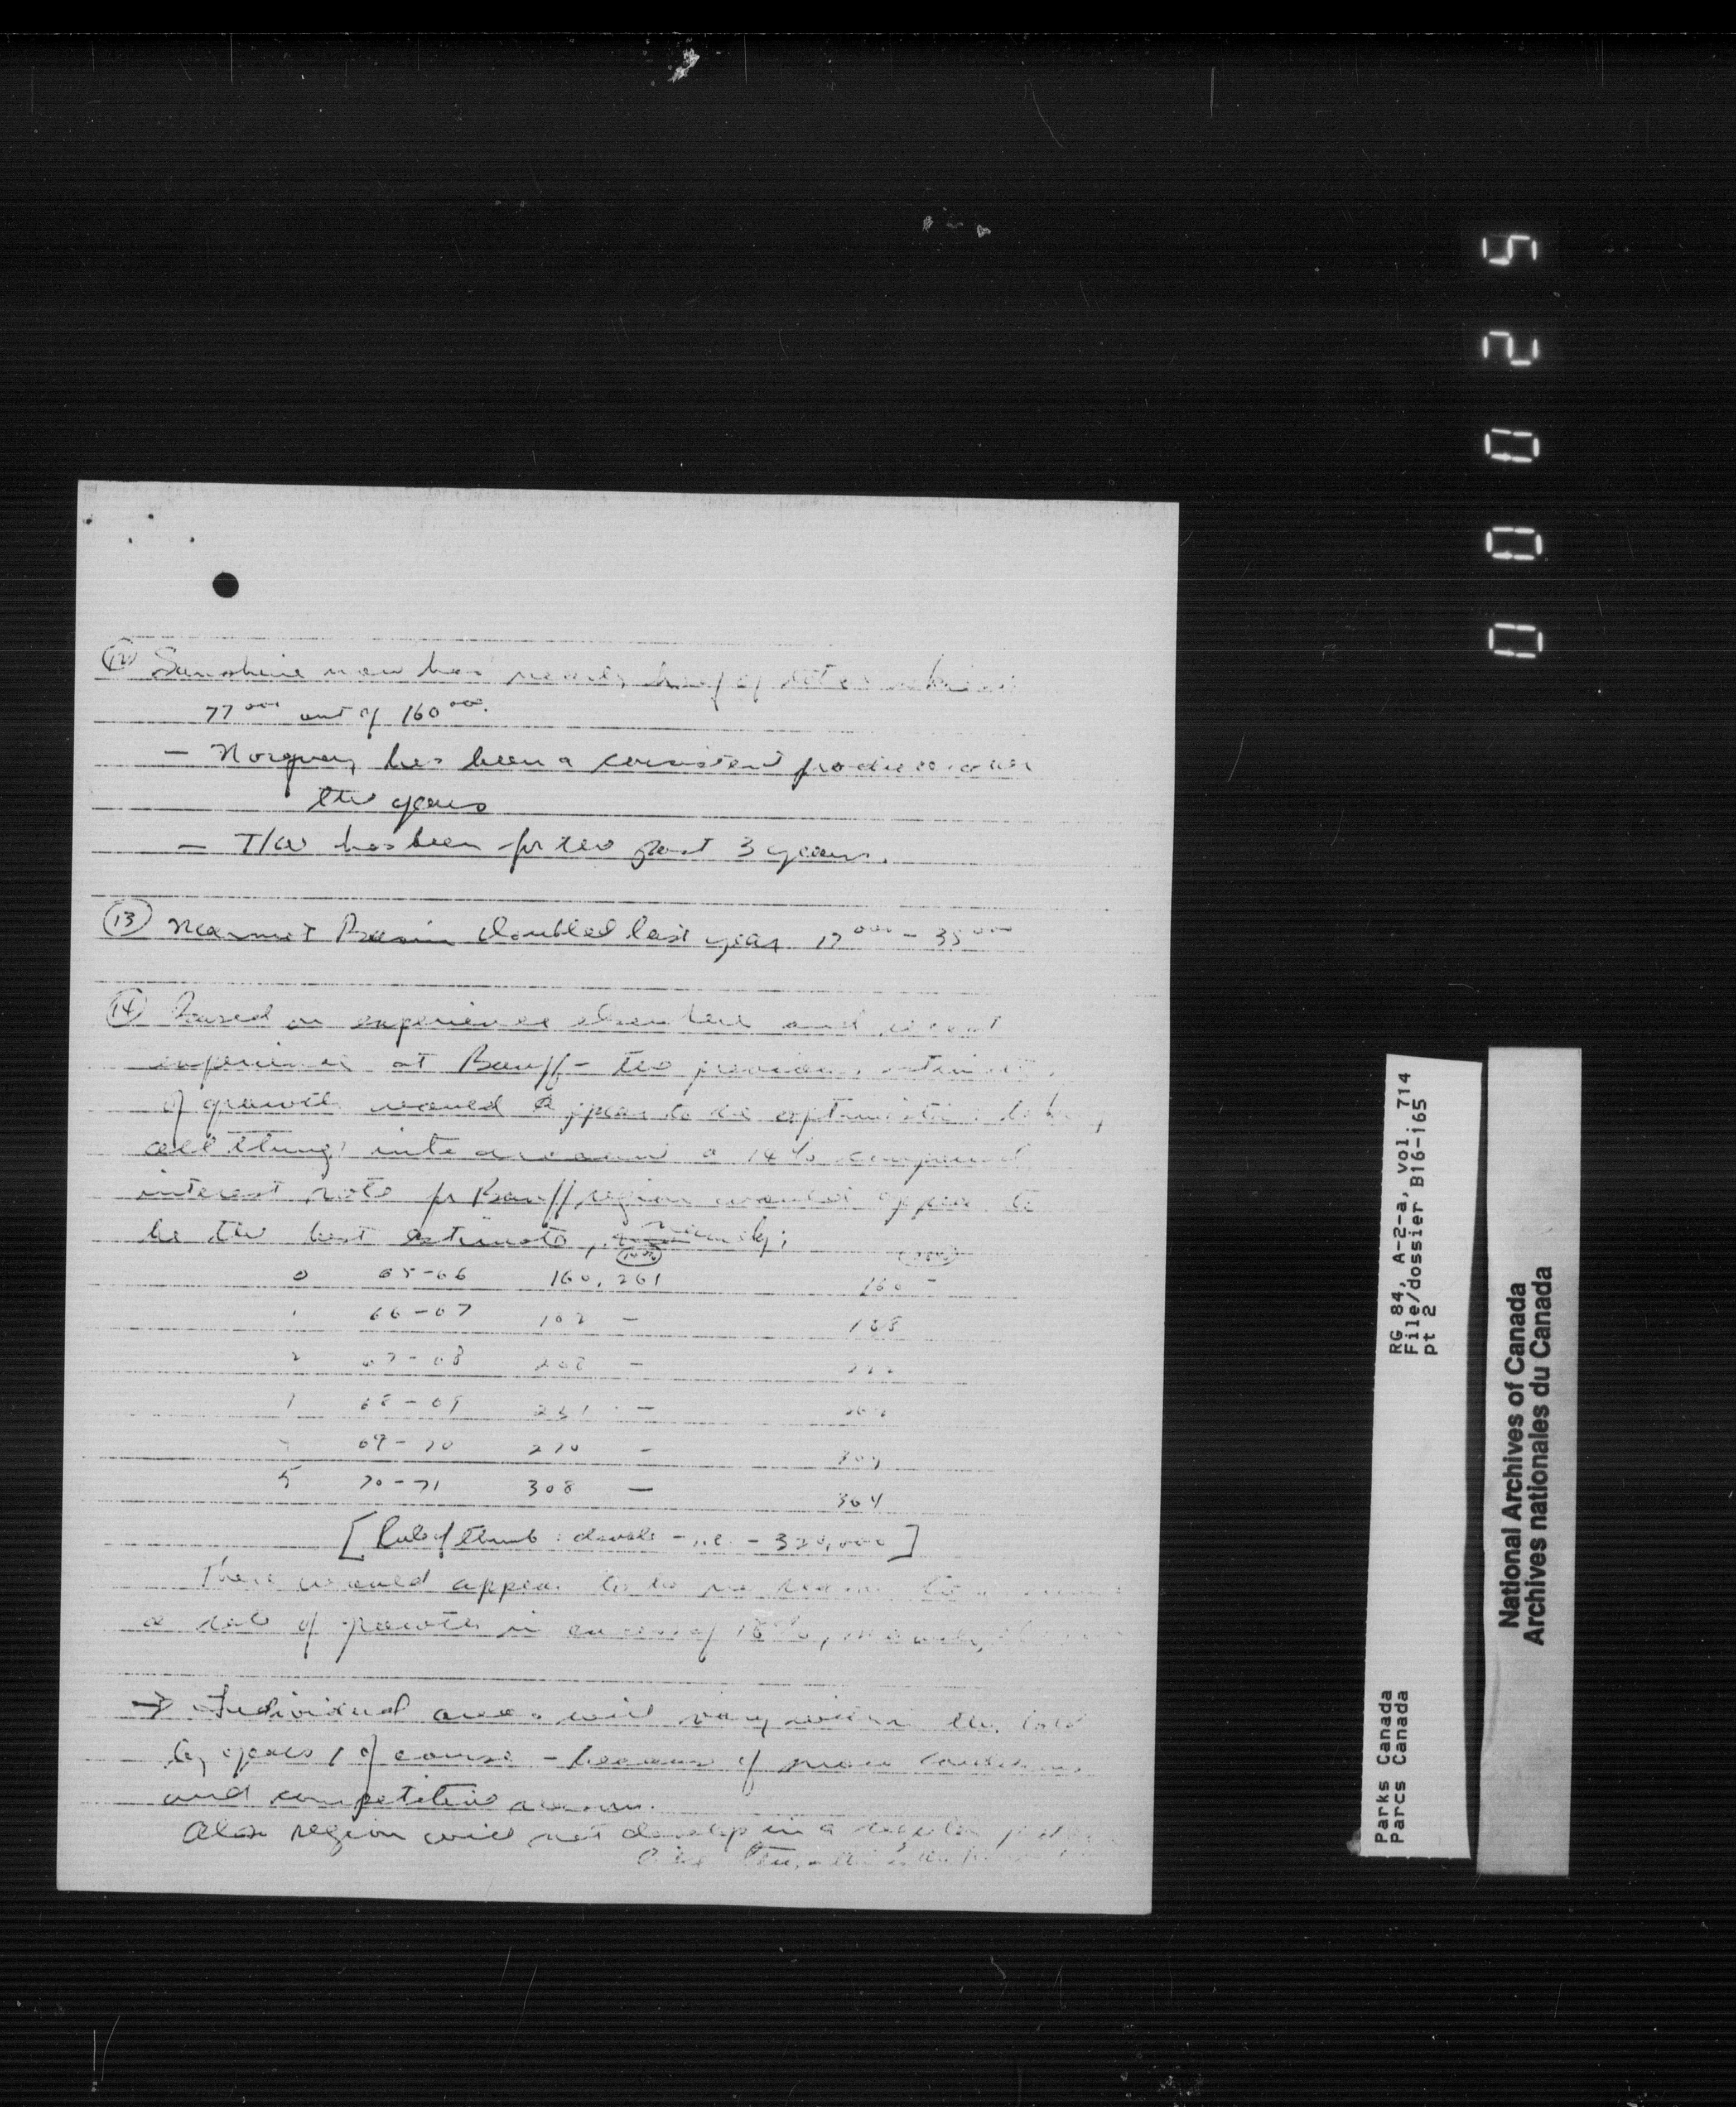 (12) Sunshine now has nearly half of total skiers
77 000 out of 160 000.
- Norquay has been a consistent producer over
the years
- T/W has been for the past 3 years.
(13) Marmot Basin doubled last year 17 000 - 35 000
(14) Based on experience elsewhere and recent
experience at Banff - the previous estimates
of growth would appear to be optimistic:
all things into account a 14% compound
interest rate for Banff region would appear to
be the best estimate, namely;
14%
0 65-66 160,261 160 -
66-67 182 - 188
2 67-68 208 - 222
68-69 237 - 262
69-70 270 - 309
5 70-71 308 - 364
[Rule of thumb: double - i.e. - 320,000]
There would appear to be no reason to
a rate of growth in excess of 18%, namely,
→ Individual areas will vary within the total
by years, of course - because of snow conditions
and competitive reasons.
Also region will not develop in a regular
00025
RG 84, A-2-a, vol. 714
File/dossier B16-165
pt 2
Parks Canada
Parcs Canada
National Archives of Canada
Archives nationales du Canada